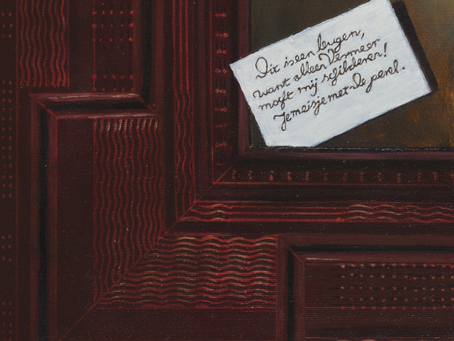 Dit is een leugen,
want alleen Vermeer
moſt mij schilderen!
Je meisje met de parel.